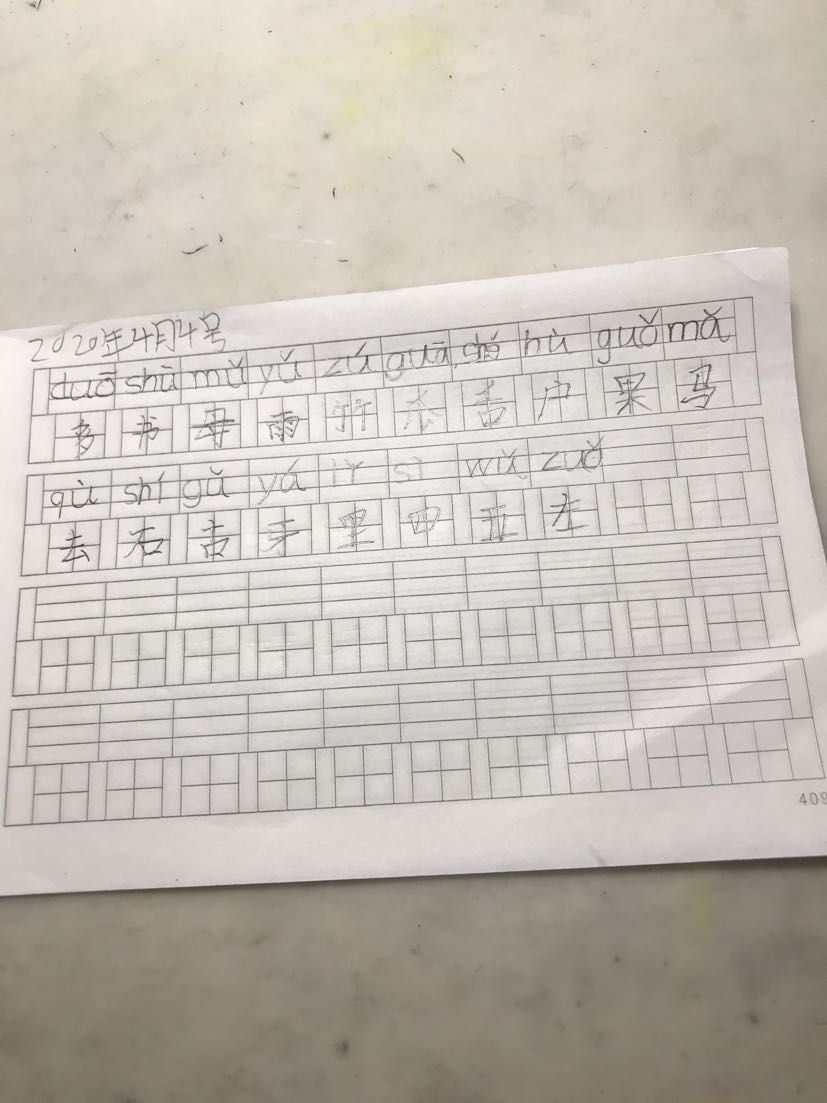 2020年4月4号
duō shū mǔ yǔ zú guā shé hù guǒ mǎ
多 书 母 雨 竹 瓜 舌 户 果 马
qù shí gǔ yá lǐ sì wǔ zuǒ
去 石 古 牙 里 四 五 左
409